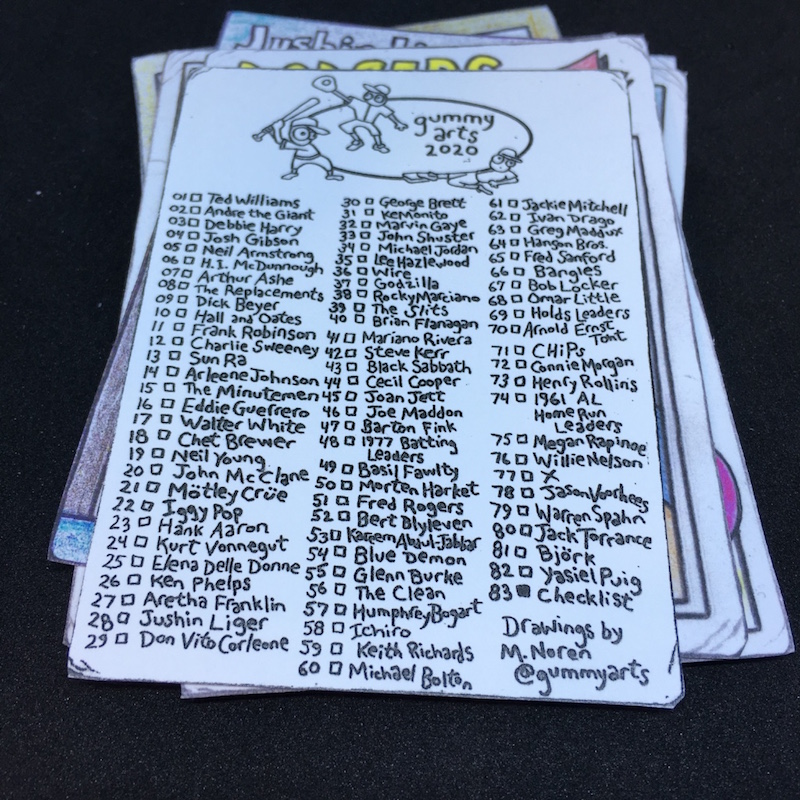 Jushin
DODGERS
gummy
arts
2020
01 Ted Williams
02 Andre the Giant
03 Debbie Harry
04 Josh Gibson
05 Neil Armstrong
06 H.I. McDunnough
07 Arthur Ashe
08 The Replacements
09 Dick Beyer
10 Hall and Oates
11 Frank Robinson
12 Charlie Sweeney
13 Sun Ra
14 Arleene Johnson
15 The Minutemen
16 Eddie Guerrero
17 Walter White
18 Chet Brewer
19 Neil Young
20 John McClane
21 Mötley Crüe
22 Iggy Pop
23 Hank Aaron
24 Kurt Vonnegut
25 Elena Delle Donne
26 Ken Phelps
27 Aretha Franklin
28 Jushin Liger
29 Don Vito Corleone
30 George Brett
31 Kemonito
32 Marvin Gaye
33 John Shuster
34 Michael Jordan
35 Lee Hazlewood
36 Wire
37 Godzilla
38 Rocky Marciano
39 The Slits
40 Brian Flanagan
41 Mariano Rivera
42 Steve Kerr
43 Black Sabbath
44 Cecil Cooper
45 Joan Jett
46 Joe Maddon
47 Barton Fink
48 1977 Batting
Leaders
49 Basil Fawlty
50 Morten Harket
51 Fred Rogers
52 Bert Blyleven
53 Kareem Abdul-Jabbar
54 Blue Demon
55 Glenn Burke
56 The Clean
57 Humphrey Bogart
58 Ichiro
59 Keith Richards
60 Michael Bolton
61 Jackie Mitchell
62 Ivan Drago
63 Greg Maddux
64 Hanson Bros.
65 Fred Sanford
66 Bangles
67 Bob Locker
68 Omar Little
69 Holds Leaders
70 Arnold Ernst
Toht
71 CHiPs
72 Connie Morgan
73 Henry Rollins
74 1961 AL
Home Run
Leaders
75 Megan Rapinoe
76 Willie Nelson
77 X
78 Jason Voorhees
79 Warren Spahn
80 Jack Torrance
81 Björk
82 Yasiel Puig
83 Checklist
Drawings by
M. Noren
@gummyarts